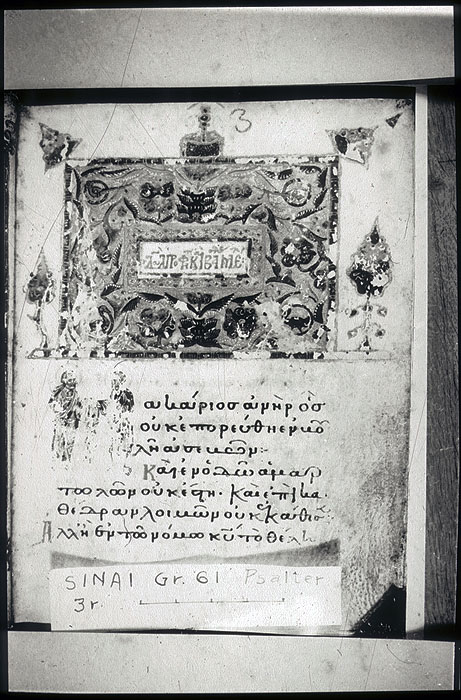 3
ακάριος ἀνὴρ ὃς
οὐκ ἐπορεύθη ἐν βου
λῇ ἀσεβῶν:
Καὶ ἐν ὁδῷ ἁμαρ
τωλῶν οὐκ ἔστη· Καὶ ἐπὶ κα
θέδραν λοιμῶν οὐκ ἐκάθισεν
Ἀλλ' ἢ ἐν τῶ νόμω κ̅υ̅ τὸ θέλη
SINAI Gr. 61 Psalter
3r.